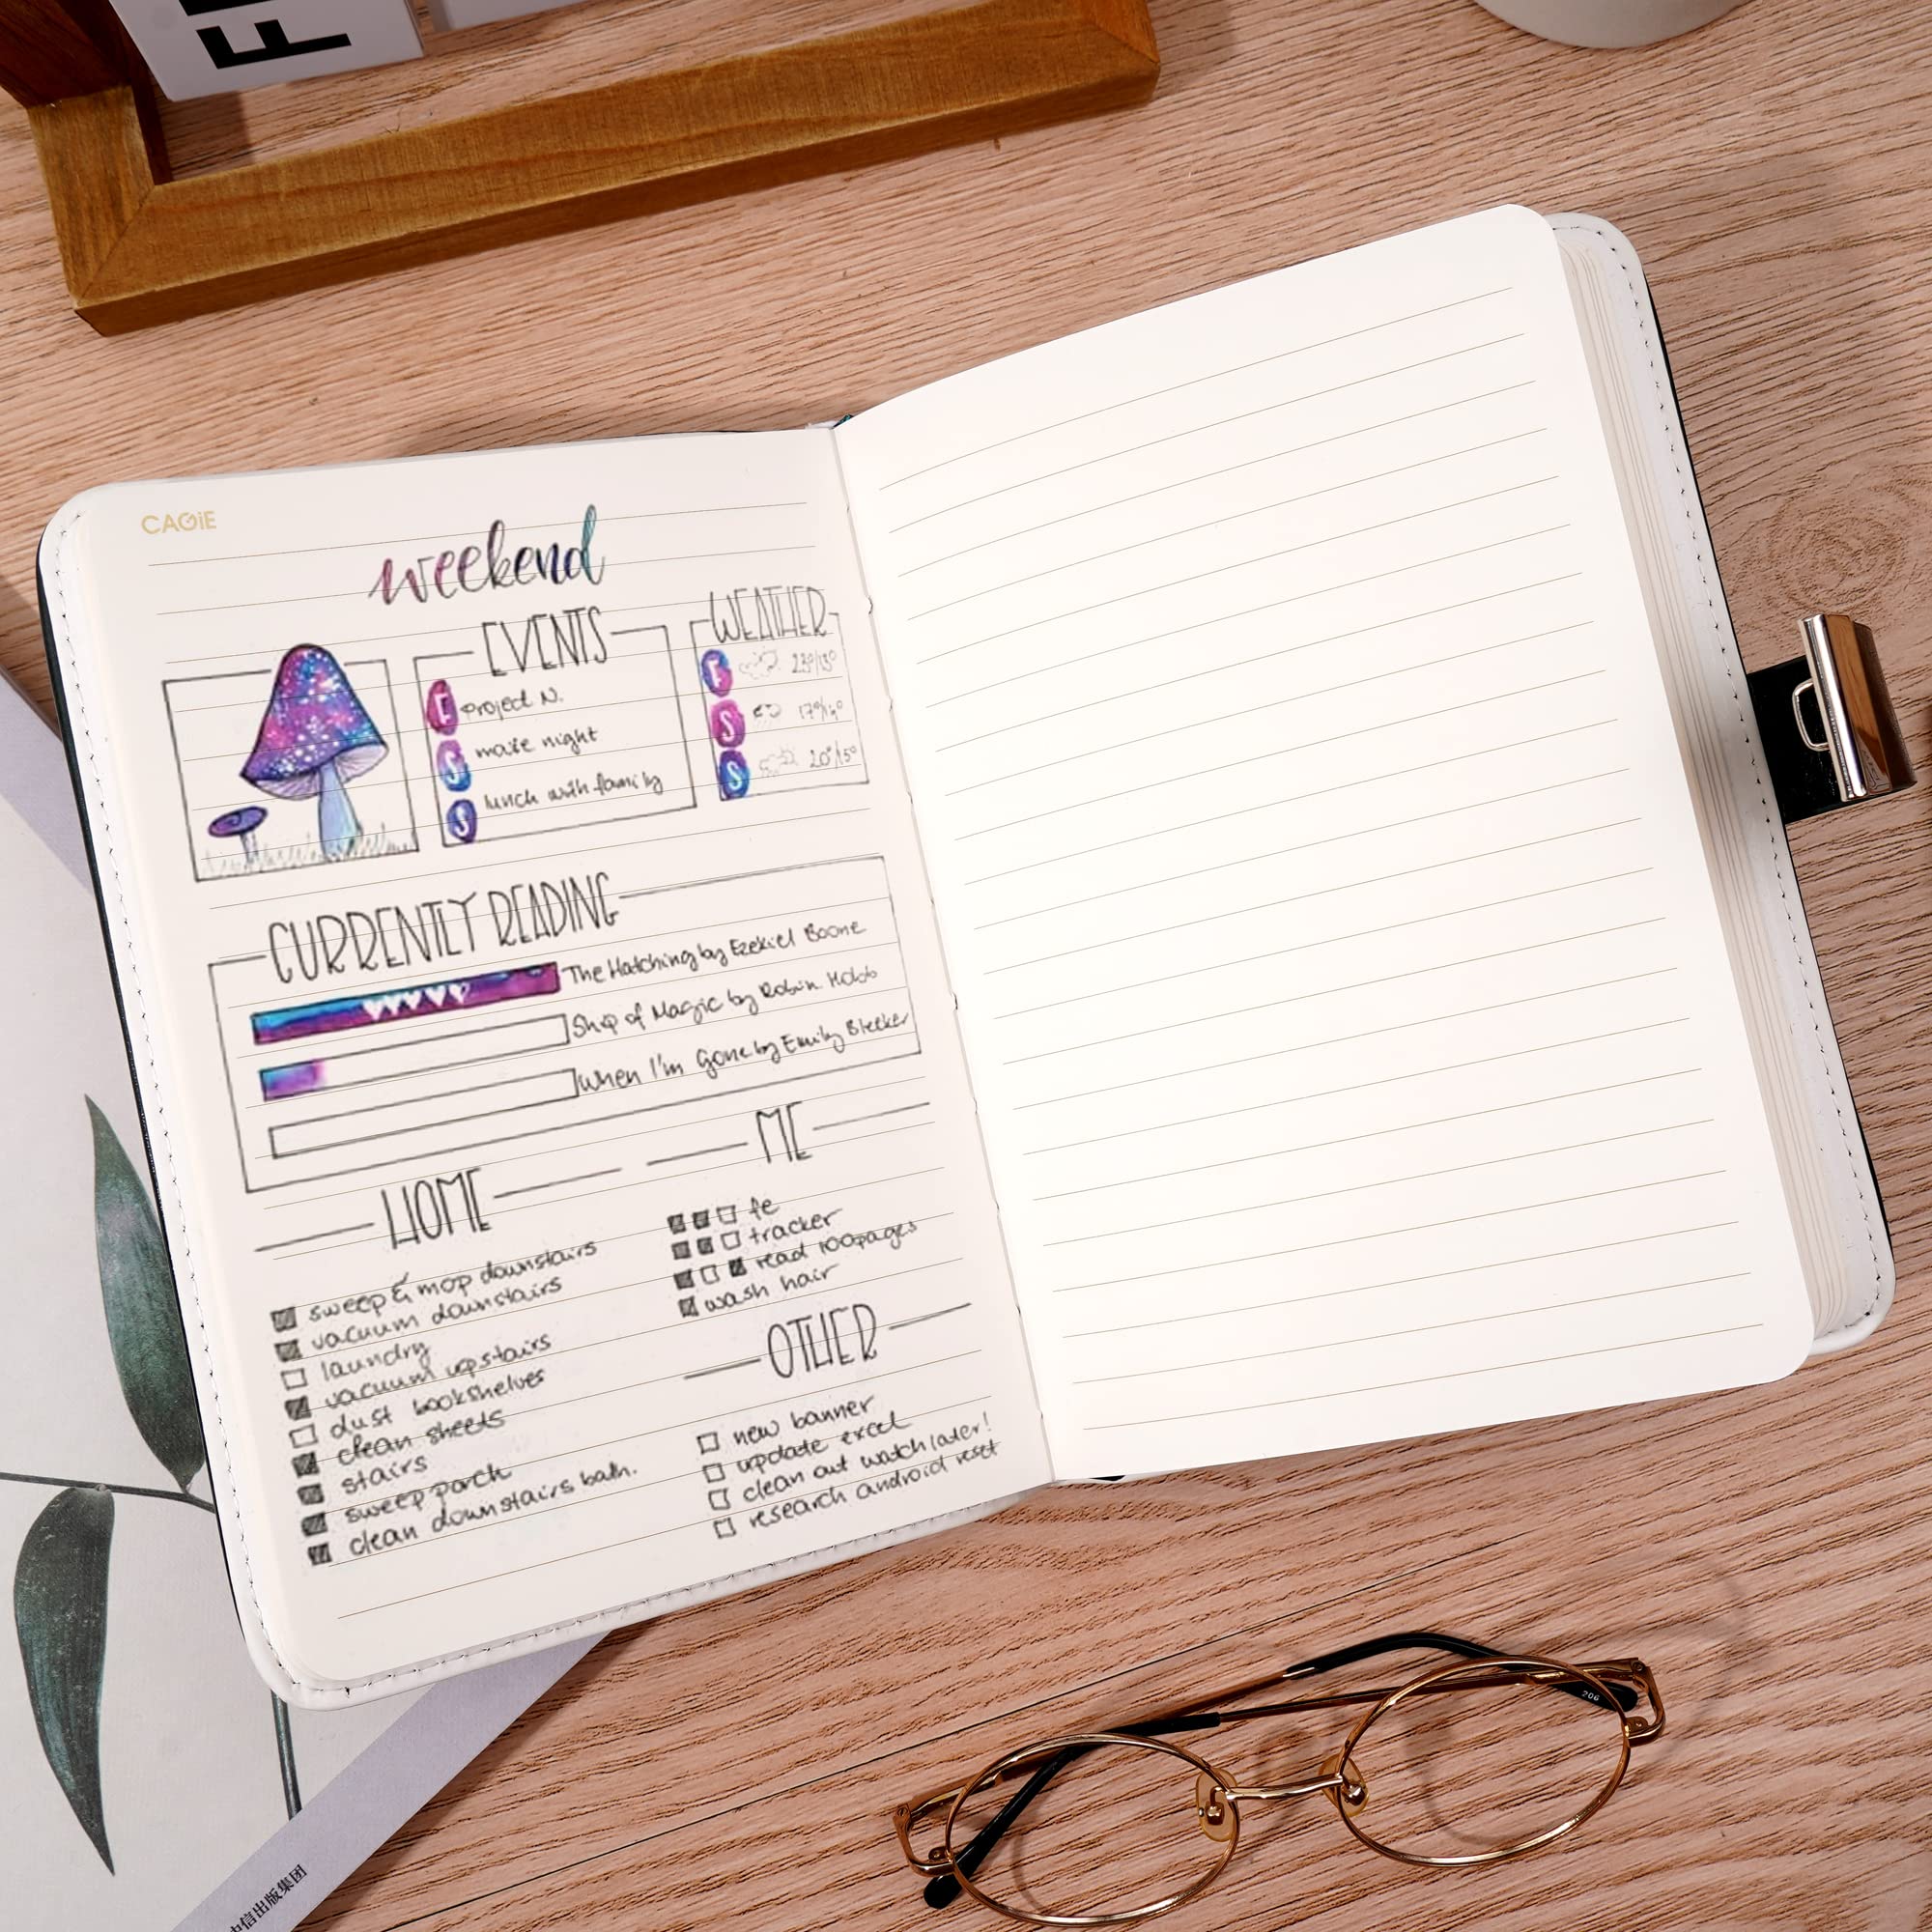 F
CAGiE
weekend
EVENTS
F project N.
S movie night
S lunch with family
WEATHER
F 23°/13°
S 17°/14°
S 20°/15°
CURRENTLY READING
The Hatching by Ezekiel Boone
Ship of Magic by Robin Hobb
When I'm Gone by Emily Bleeker
HOME
sweep & mop downstairs
vacuum downstairs
laundry
vacuum upstairs
dust bookshelves
clean sheets
stairs
sweep porch
clean downstairs bath.
ME
fe
tracker
read 100pages
wash hair
OTHER
new banner
update excel
clean out watch later!
research android reset
206
中信出版集团